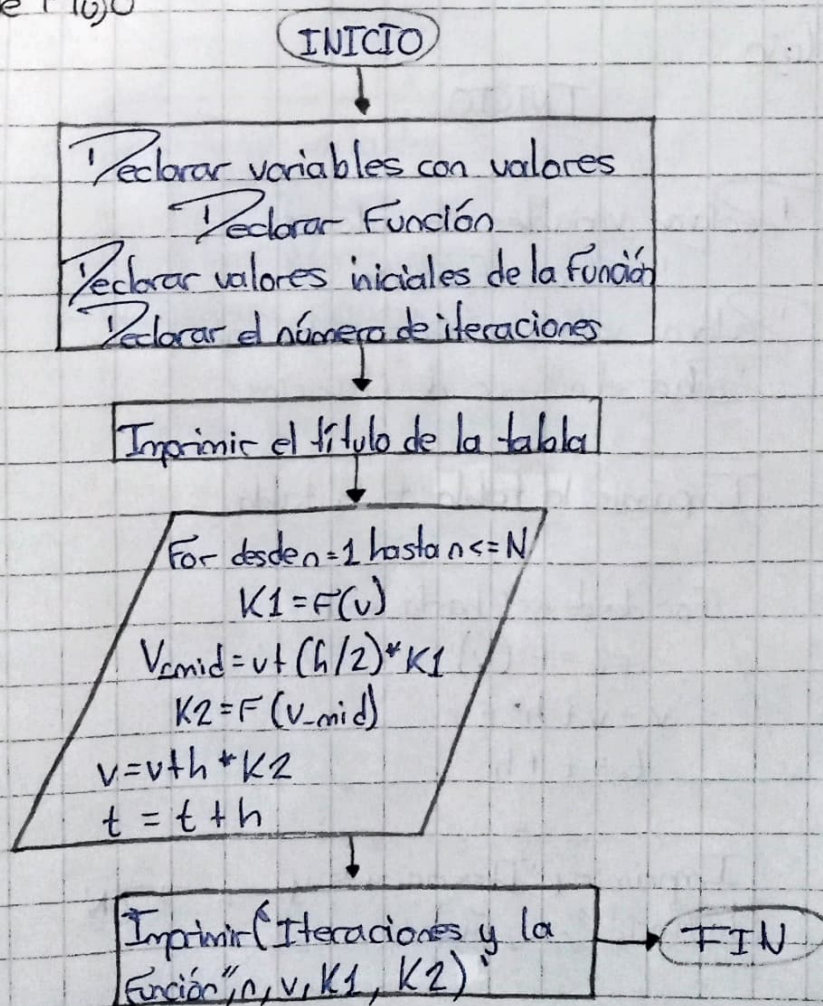 INICIO
Declarar variables con valores
Declarar Función
Declarar valores iniciales de la función
Declarar el número de iteraciones
Imprimir el título de la tabla
For desde n=1 hasta n<=N
K1=F(v)
V_mid=v+(h/2)*K1
K2=F(v_mid)
v=v+h*K2
t=t+h
Imprimir("Iteraciones y la
Función",n,v,K1,K2)
FIN